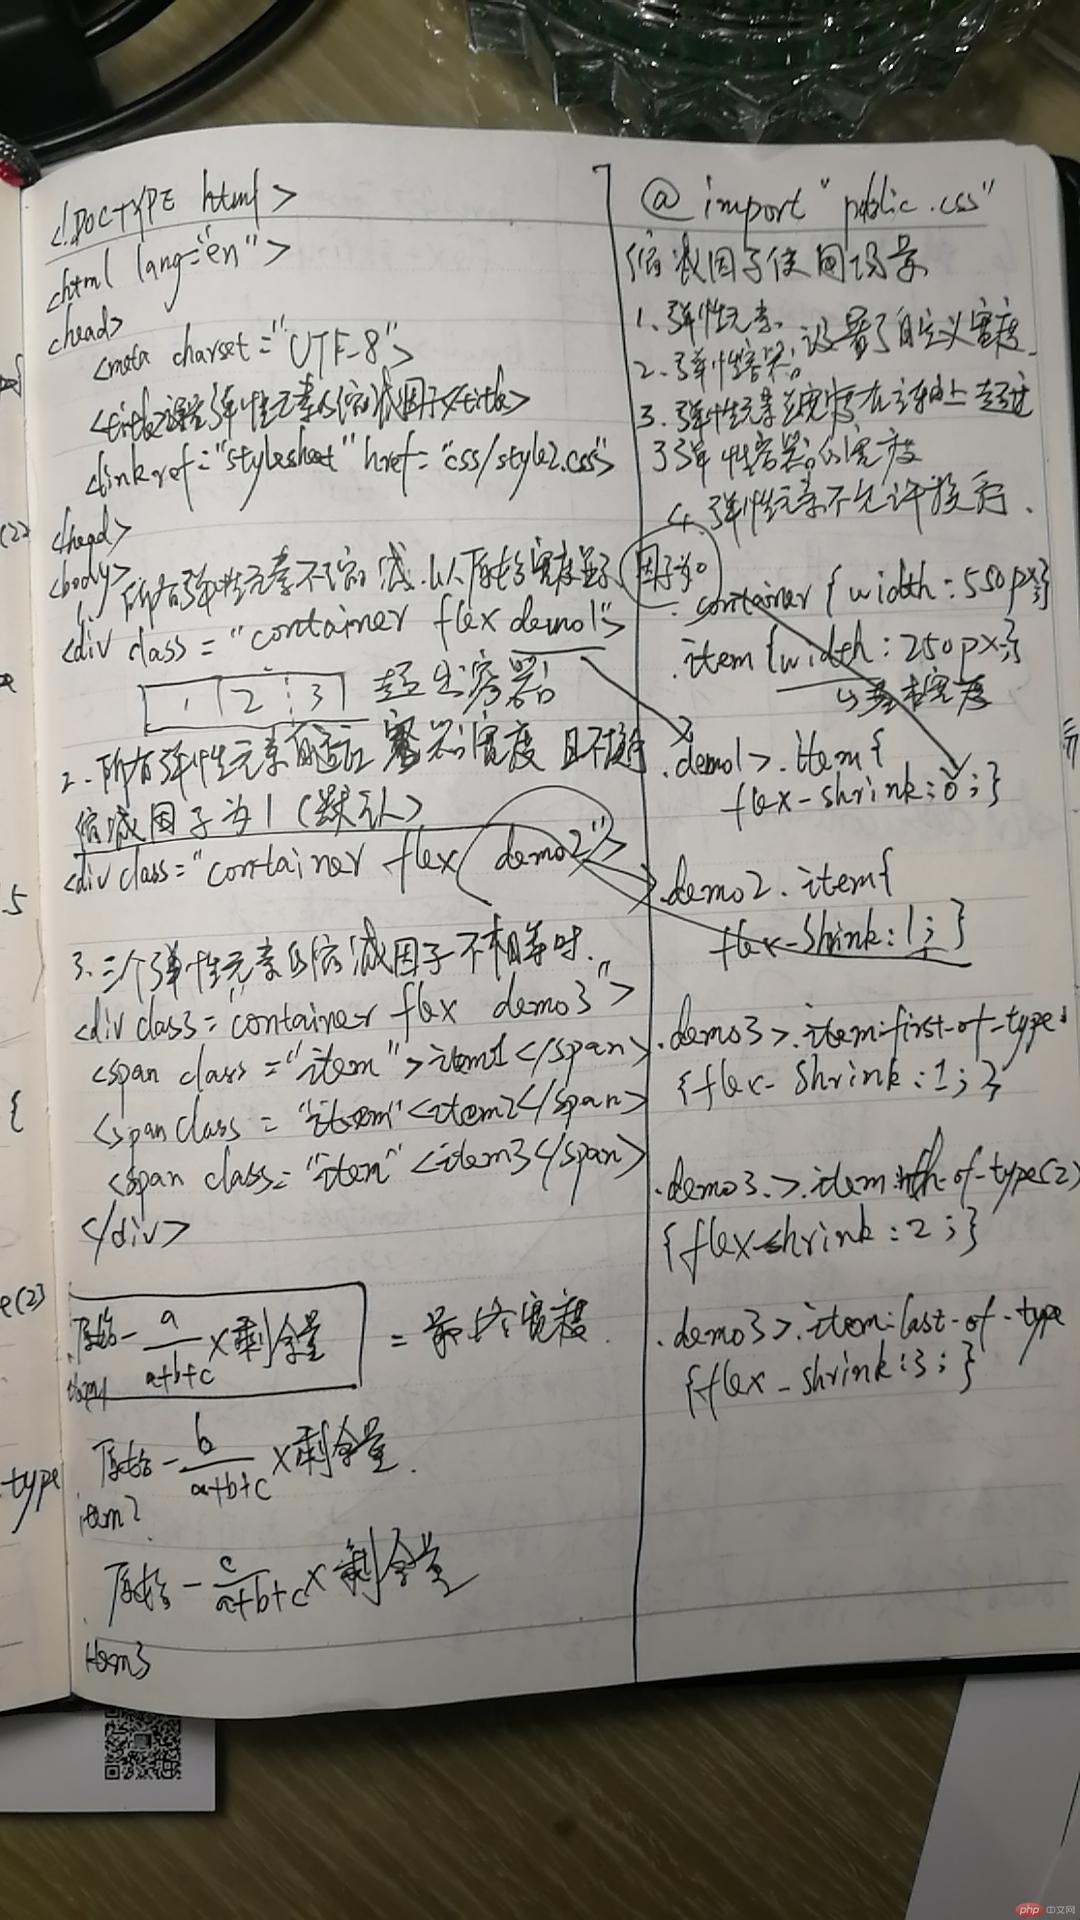 <!DOCTYPE html>
<html lang="en">
<head>
<meta charset="UTF-8">
弹性元素的缩减因子</title>
<link ref="stylesheet" href="css/style2.css">
<head>
<body>
所有弹性元素不缩减.以原始宽度显示 因子为0
<div class="container flex demo1">
1 2 3 超出容器
2.所有弹性元素自适应容器宽度且不换行
缩减因子为1(默认)
<div class="container flex demo2">
3.三个弹性元素的缩减因子不相等时.
<div class="container flex demo3">
<span class="item">item1</span>
<span class="item"<item2</span>
<span class="item"<item3</span>
</div>
原始- a/a+b+c ×剩余量 = 最终宽度.
item1
原始- b/a+b+c ×剩余量.
item2
原始- c/a+b+c ×剩余量
item3
@import "public.css"
缩减因子使用场景
1.弹性元素
2.弹性容器 设置了自定义宽度
3.弹性元素总宽度在主轴上超过
了弹性容器的宽度
4.弹性元素不允许换行.
.container {width:550px}
.item {width:250px;}
基本宽度
.demo1>.item {
flex-shrink:0;}
.demo2.item{
flex-shrink:1;}
.demo3>.item:first-of-type
{flex-shrink:1;}
.demo3.>.item:nth-of-type(2)
{flex-shrink:2;}
.demo3>.item:last-of-type
{flex-shrink:3;}
(2)
.5
{
e(2)
-type
php 中文网